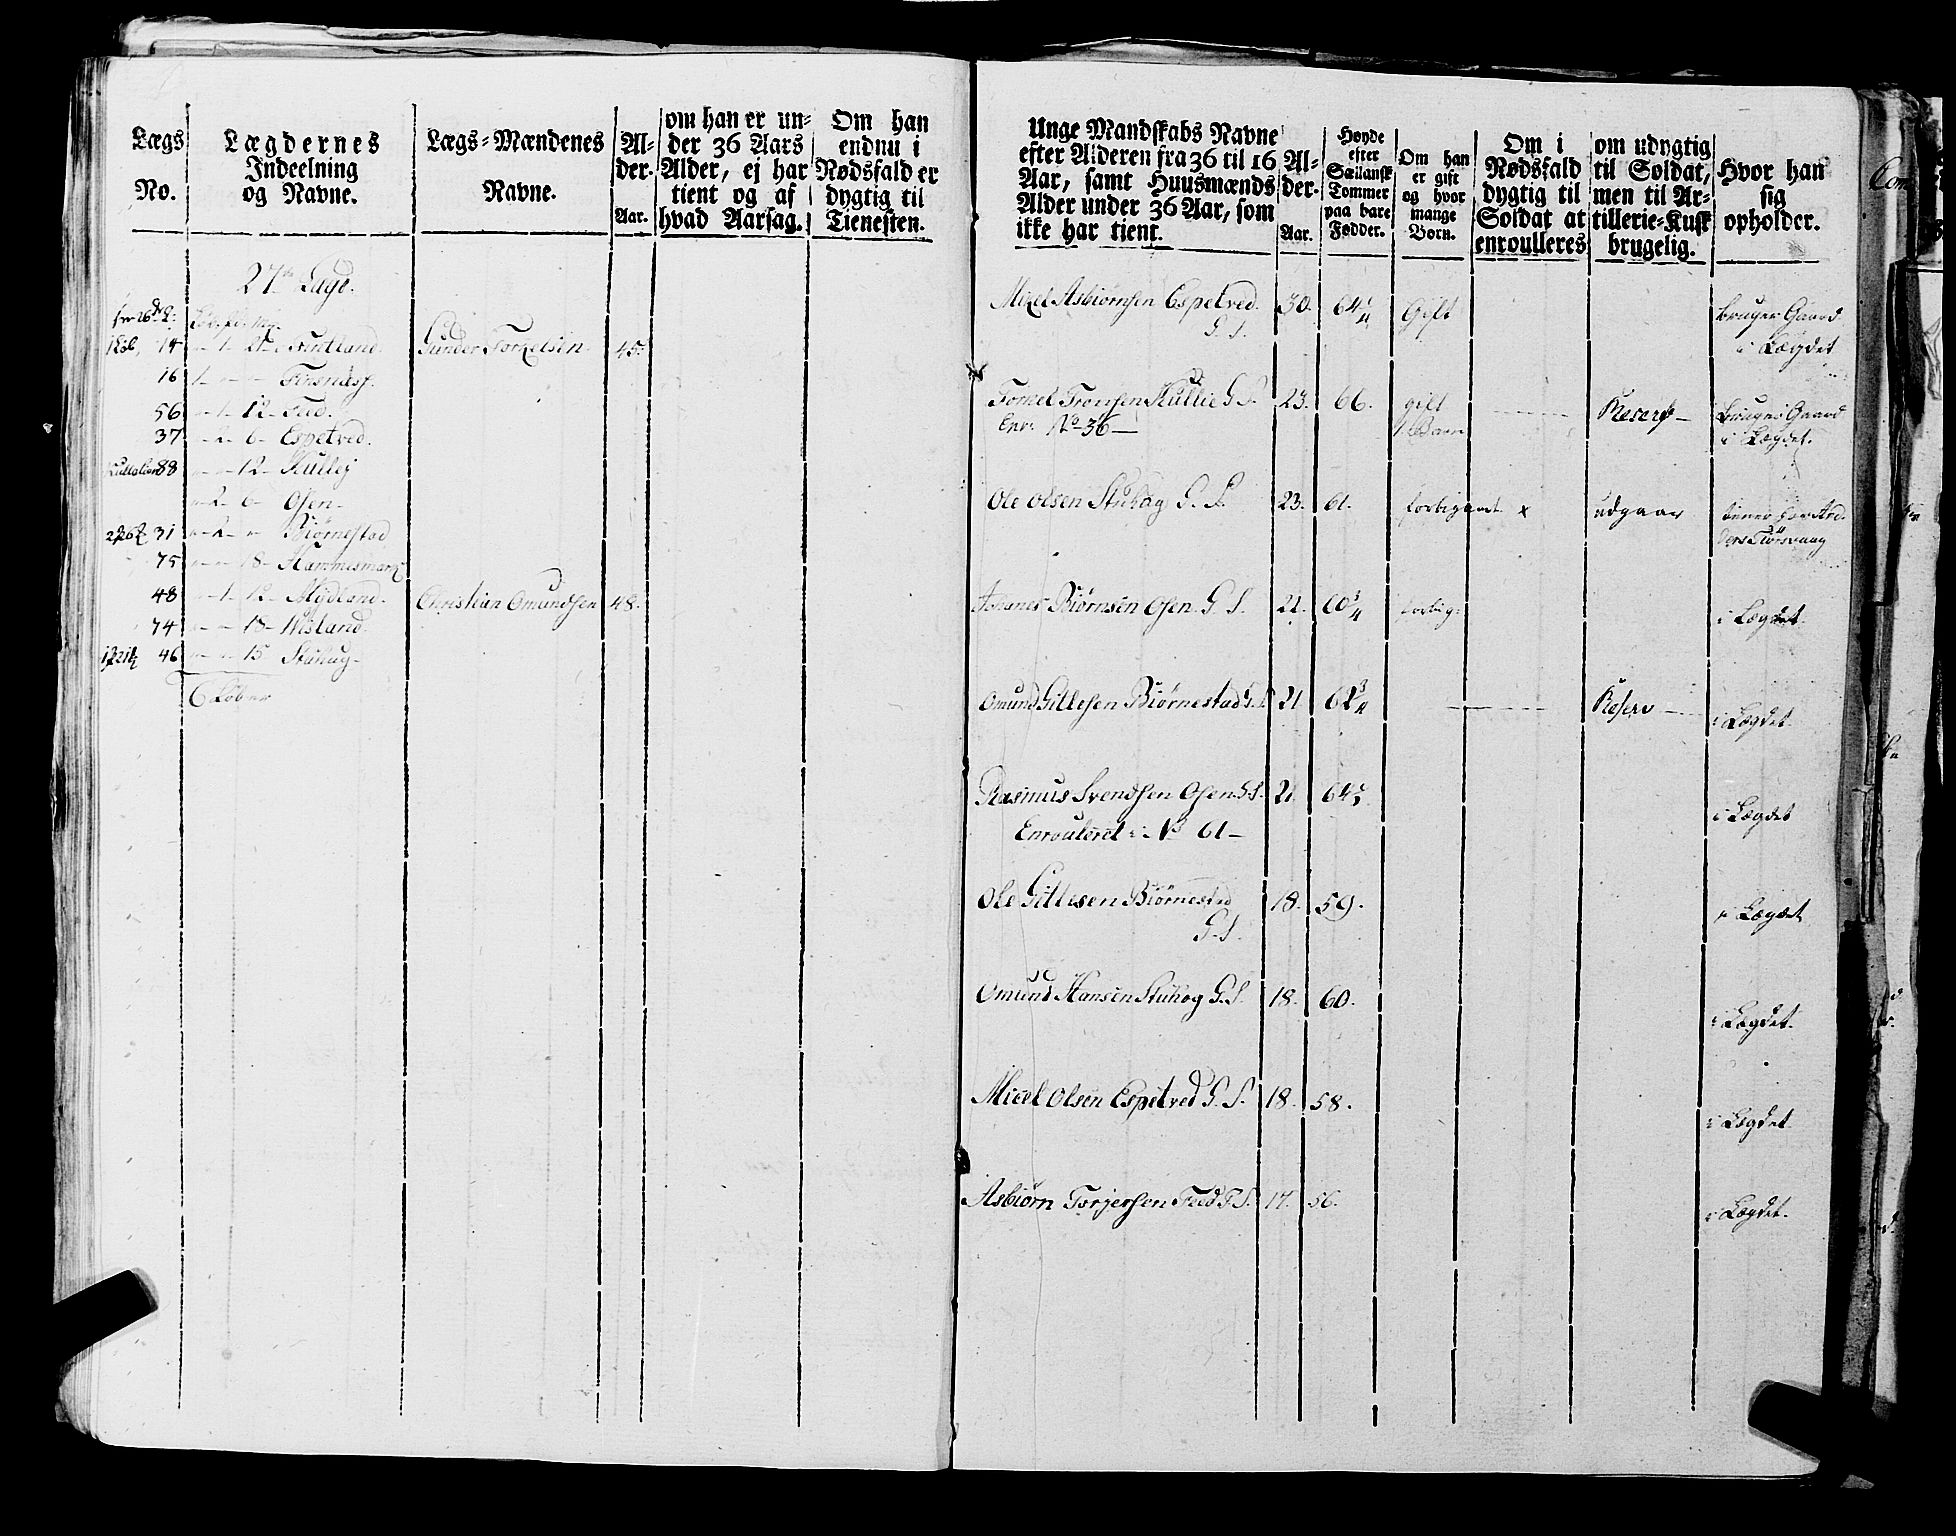 Lægs No.
Lægdernes Indeelning og Navne.
Lægs-Mændenes Navne.
Alder. Aar.
om han er under 36 Aars Alder, ej har tient og af hvad Aarsag.
Om han endnu i Nødsfald er dygtig til Tienesten.
27de Lægd.
14 1 21 Frestland. Gunder Torkelsen 45.
16 1
56 1 12
37 2 6 Espetved.
88 12 Kullej
2 6 Osen
31 2 Biørnestad
75 18
48 1 12 Mydland. Christian Omundsen 48.
74 18 Wisland.
46 15 Stuhaug
6 Løber
Unge Mandskabs Navne efter Alderen fra 36 til 16 Aar, samt Huusmænds Alder under 36 Aar, som ikke har tient.
Alder. Aar.
Høyde efter Sællansk Tommer paa bare Fødder.
Om han er gift og hvor mange Børn.
Om i Nødsfald dygtig til Soldat at enroulleres
om udygtig til Soldat, men til Artillerie-Kusk brugelig.
Hvor han sig opholder.
Micel Asbiørnsen Espetved. 30. 64 1/4 Gift bruger Gaard
G. S. i Lægdet
Torkel Tronsen Kullie G S. 23. 66. gift Reserv bruger Gaard
Enr: No 36 1 Barn i Lægdet.
Ole Olsen Stuhag G. S. 23. 61. forbigaaet x udgaar tiener
Johannes Biørnsen Osen. G. S. 21. 60 3/4 forbig: i Lægdet.
Omund Gillesen Biørnestad G. S. 21 62 3/4 Reserv i Lægdet.
Rasmus Svendsen Osen G S. 21. 64 1/2 i Lægdet
Enroulleret i No 61
Ole Gillesen Biørnestad 18. 59. i Lægdet
G. S.
Omund Hansen Stuhog G. S. 18. 60. i Lægdet.
Micel Olsen Espetved G. S. 18. 58. i Lægdet.
Asbiørn Torjersen Feed G S. 17. 56. i Lægdet.